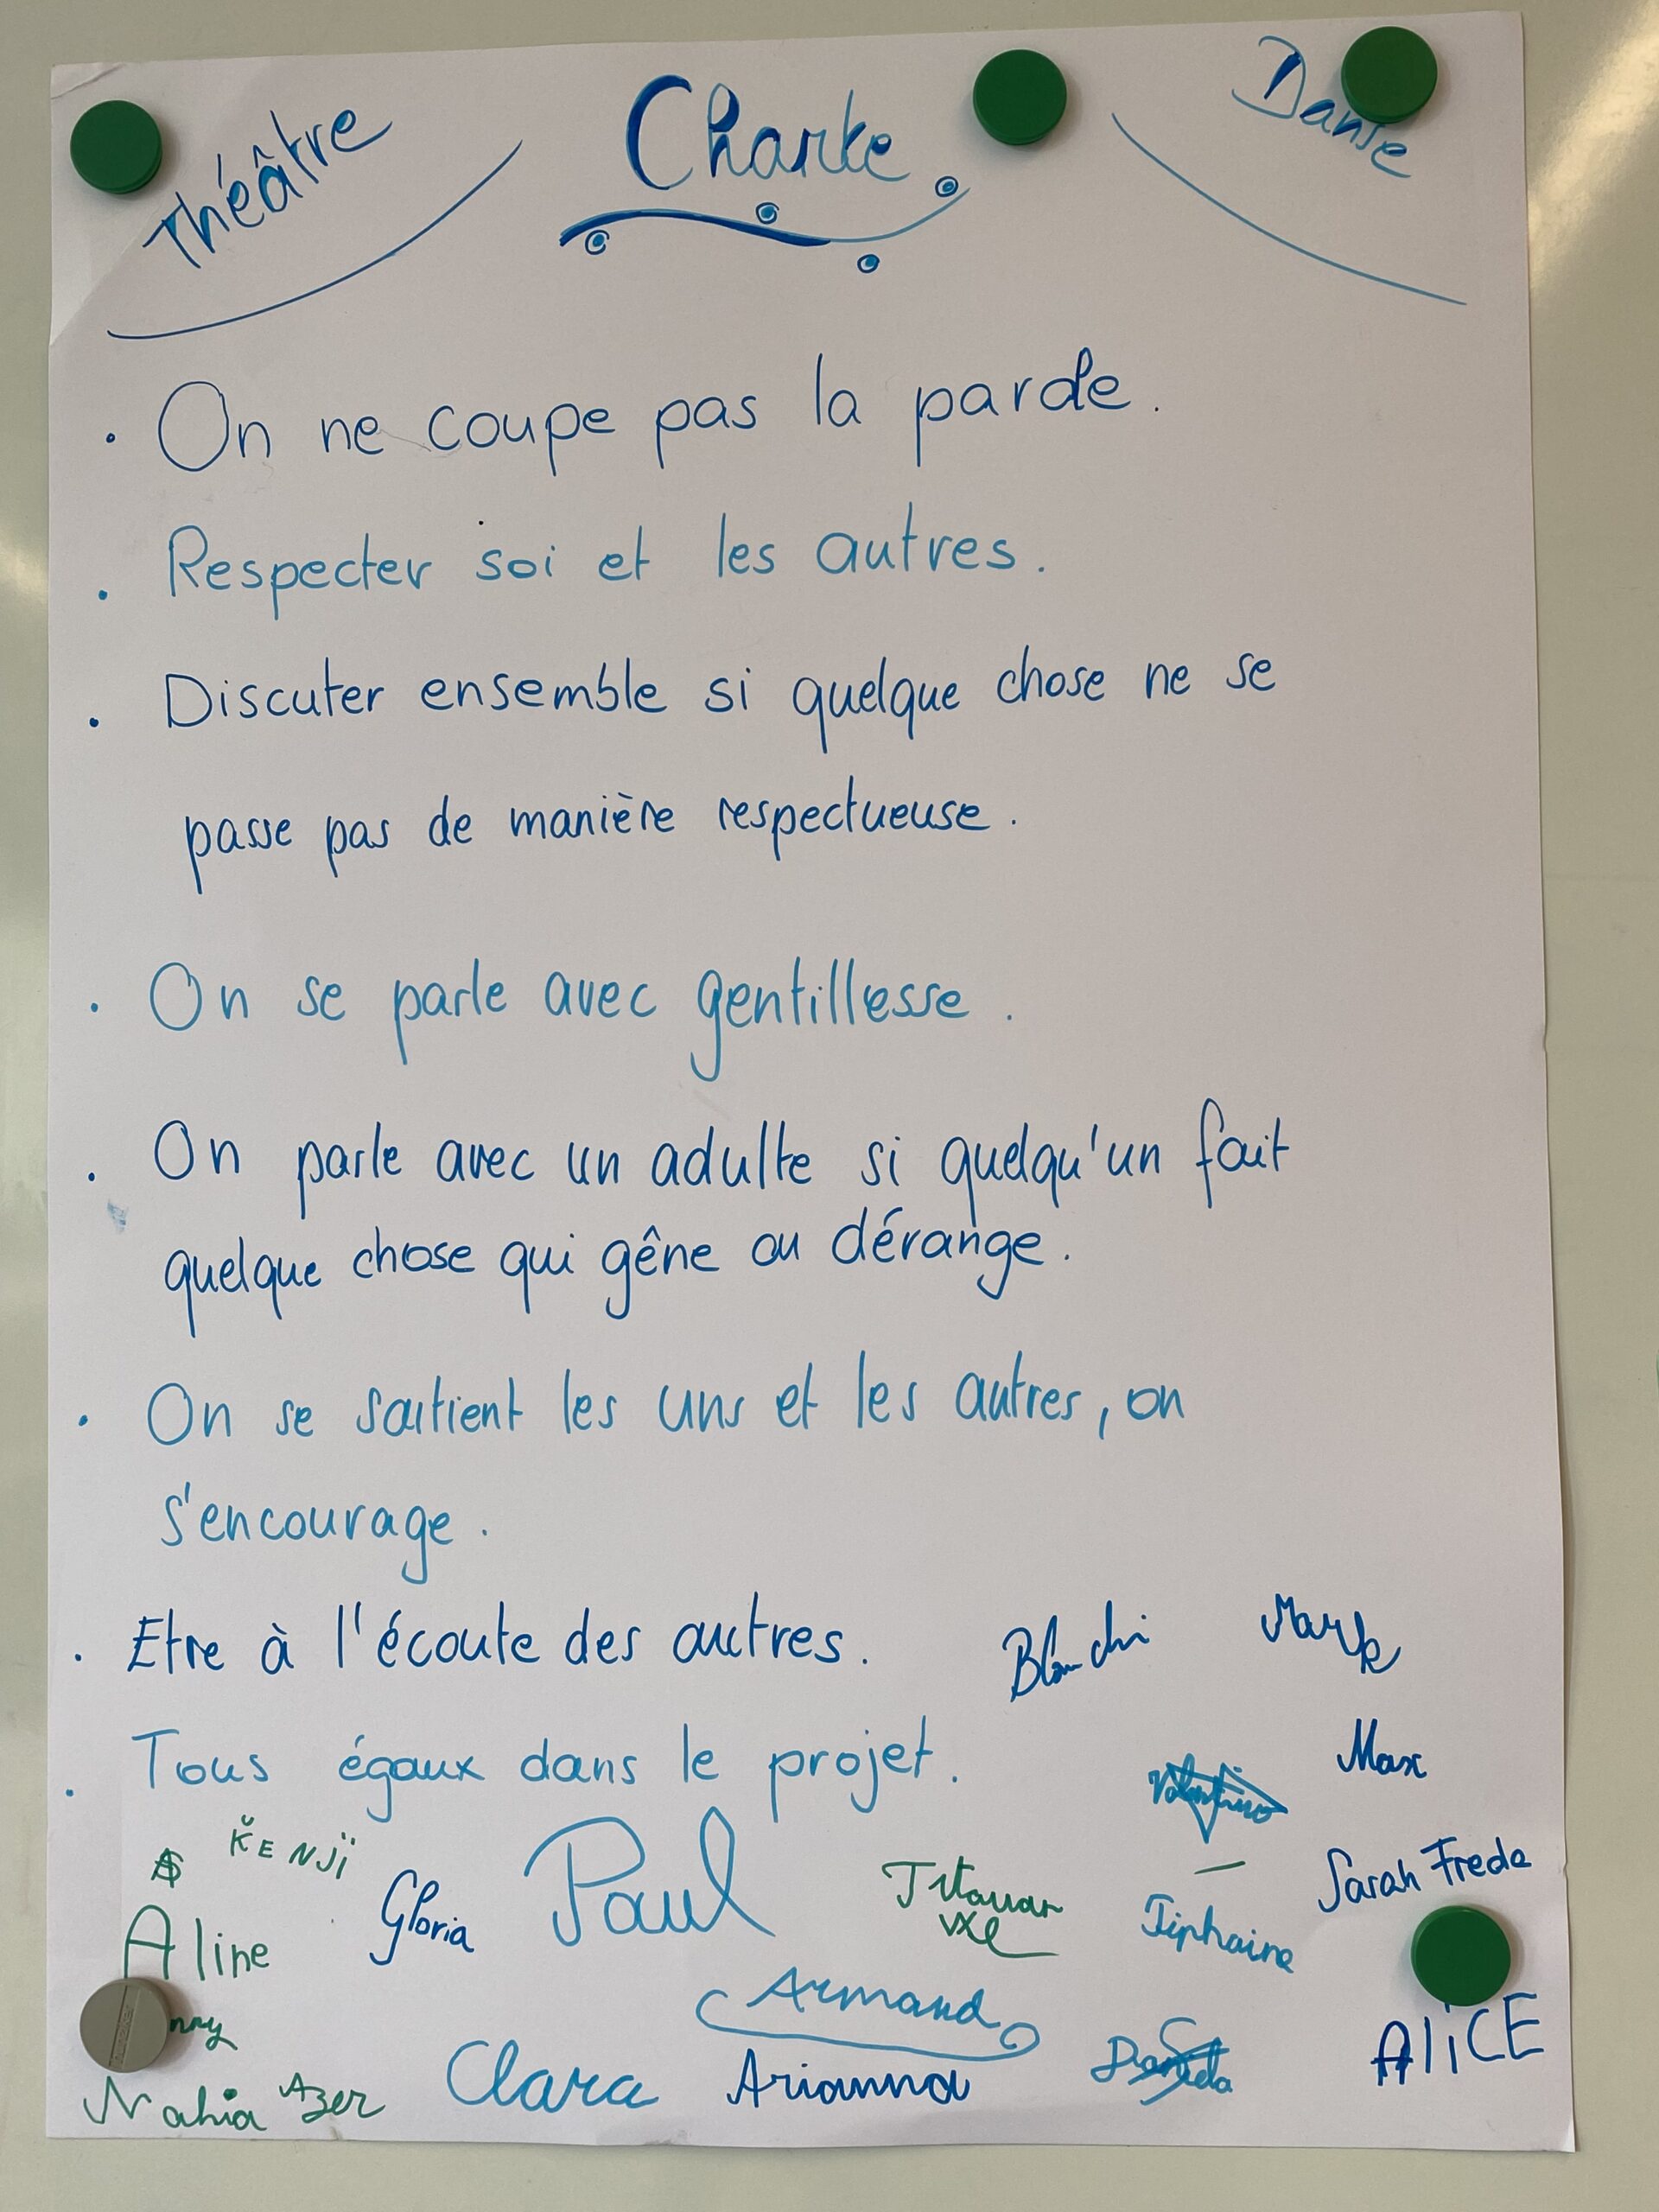 Théâtre
Charte
Danse
· On ne coupe pas la parole.
· Respecter soi et les autres.
· Discuter ensemble si quelque chose ne se
passe pas de manière respectueuse.
· On se parle avec gentillesse.
· On parle avec un adulte si quelqu'un fait
quelque chose qui gêne ou dérange.
· On se soutient les uns et les autres, on
s'encourage.
· Etre à l'écoute des autres.
Mark
· Tous égaux dans le projet.
Max
KENJi
Gloria
Paul
Sarah Frede
Aline
Tiphaine
Armand
ALiCE
Nahia
Azer
Clara
Arianna